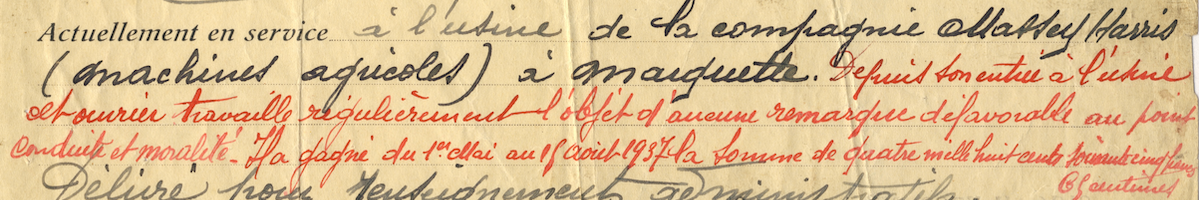 Actuellement en service à l'usine de la compagnie Massey Harris
(machines agricoles) à Marquette. Depuis son entrée à l'usine
cet ouvrier travaille régulièrement l'objet d'aucune remarque défavorable au point
conduite et moralité - Il a gagné du 1er Mai au 15 Août 1937 la somme de quatre mille huit cents soixante cinq francs
centimes
Délivré pour renseignement administratif.